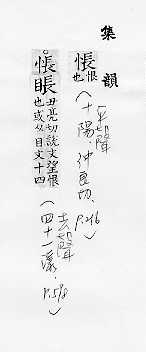 集韻
悵 恨也
(平聲
十陽.沖良切.
P.216)
悵 䁰 丑亮切說文望恨也或从目文十四
(去聲
四十一漾.
P.598)